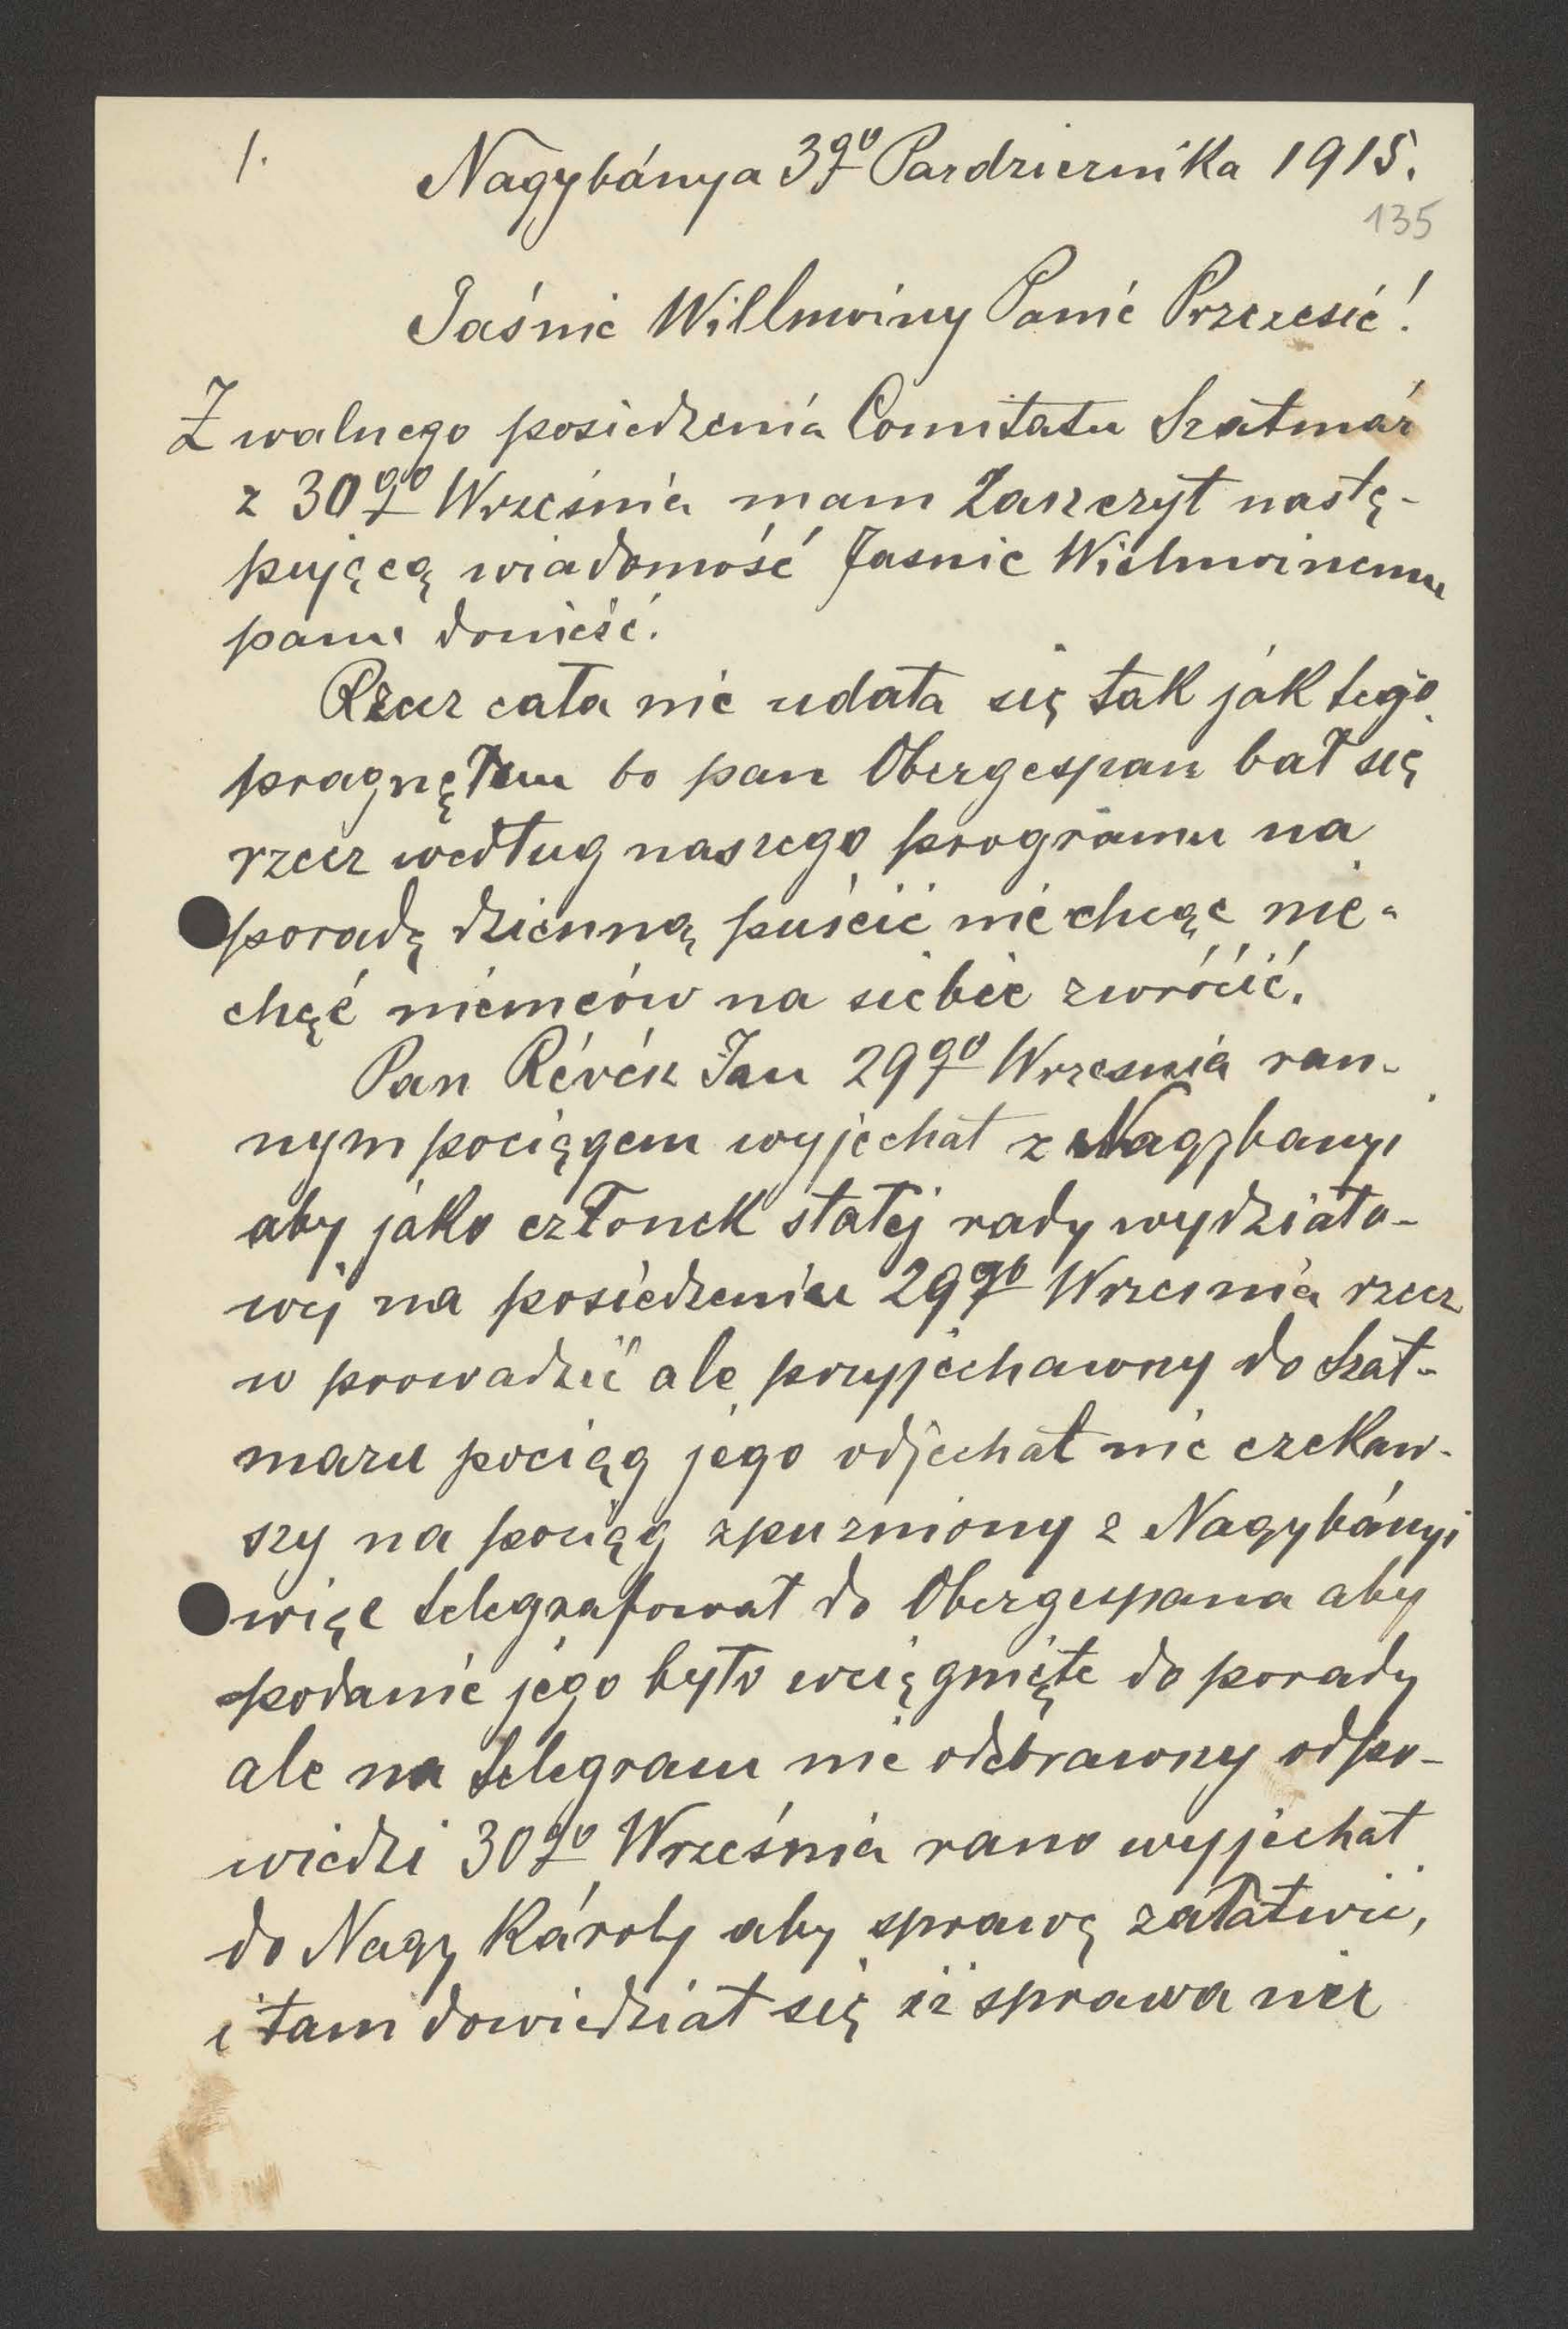 1.
Nagybánya 3go Pazdziernika 1915.
135
Jaśnie Willmoiny Panie Przezesie!
Z walnego posiedzenia Comitatu Szatmár
z 30go Września mam Zaszczyt nastę-
pującą wiadomość Jasnie Wielmoinemu
panu donieść.
Rzecz cała nie udała się tak jak tego
pragnęłem bo pan Obergespan bał się
rzecz według naszego programu na
poradę dzienną puścić nie chcąc nie-
chęć niemców na siebie zwrócić.
Pan Révész Jan 29go Wrzesnia ran-
nym pociągem wyjechał z Nagybanyi
aby jako członek stałej rady wydziało-
wej na posiedzeniu 29go Wrzesnia rzecz
w prowadzić ale przyjechawszy do Szat-
maru pociąg jego odjechał nie czekaw-
szy na pociąg zpuzniony z Nagybányi
więc telegrafował do Obergespana aby
podanie jego było wciągnięte do porady
ale na telegram nie odebrawszy odpo-
wiedzi 30go Września rano wyjechał
do Nagy Károly aby sprawę załatwić,
i tam dowiedział się iż sprawa nie